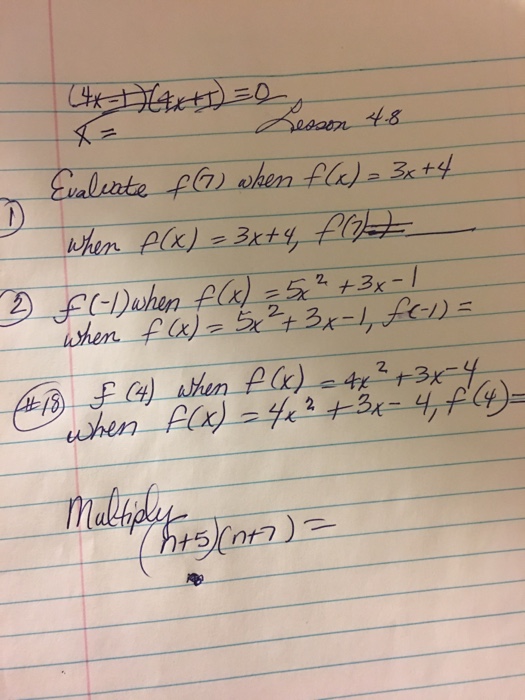 (4x-1)(4x+5)=0
x =
Lesson 4.8
Evaluate f(7) when f(x) = 3x+4
① when f(x) = 3x+4, f(7)=
② f(-1) when f(x) = 5x² + 3x-1
when f(x) = 5x²+ 3x-1, f(-1) =
#18 f (4) when f(x) = 4x² + 3x-4
when f(x) = 4x² + 3x- 4, f(4)=
Multiply
(n+5)(n+7) =